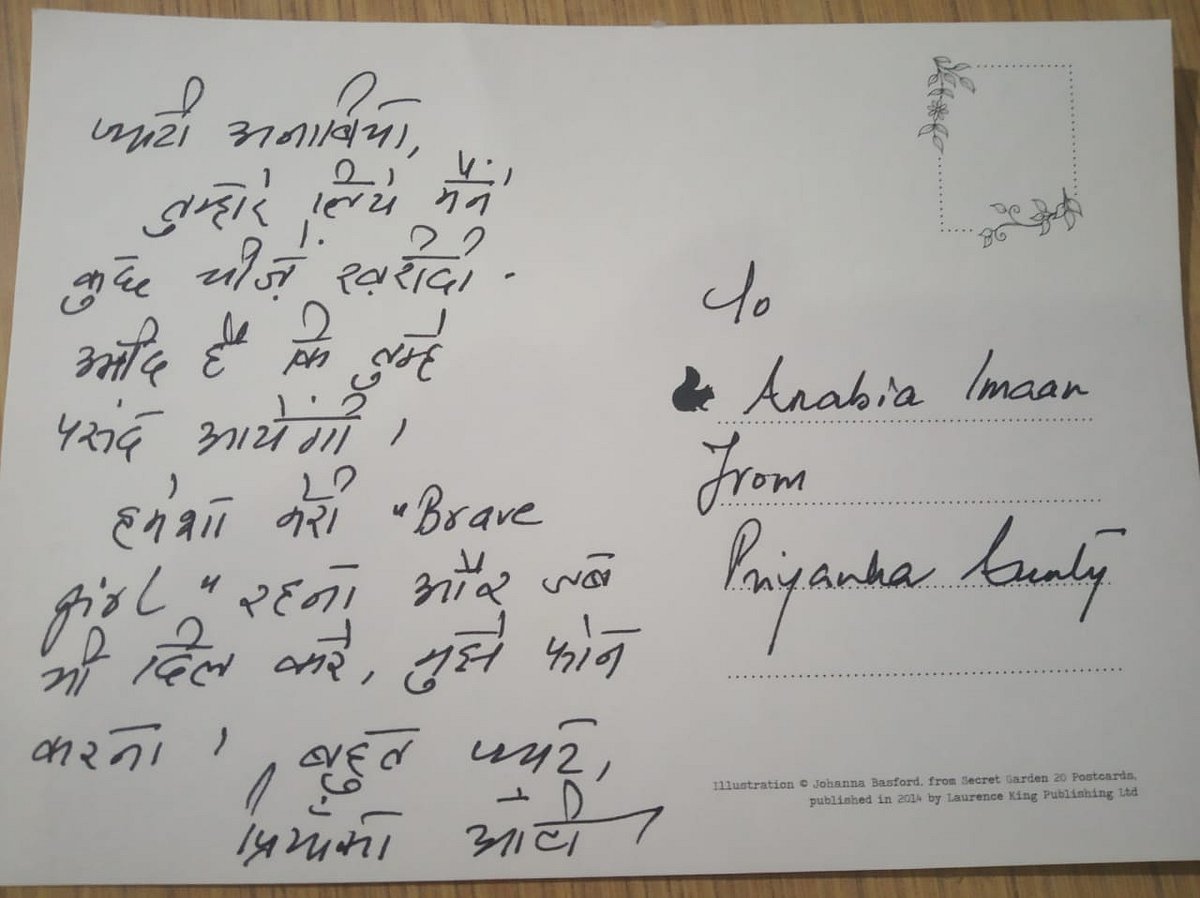 प्यारी अनाबिया,
तुम्हारे लिये मैंने
कुछ चीज़ें ख़रीदी .
उमीद है कि तुम्हें
पसंद आयेंगी ।
हमेशा मेरी "Brave
girl" रहना और जब
भी दिल करे, मुझे फोन
करना । बहुत प्यार,
प्रियांका आंटी
To
Anabia Imaan
From
Priyanka Aunty
Illustration © Johanna Basford, from Secret Garden 20 Postcards,
published in 2014 by Laurence King Publishing Ltd